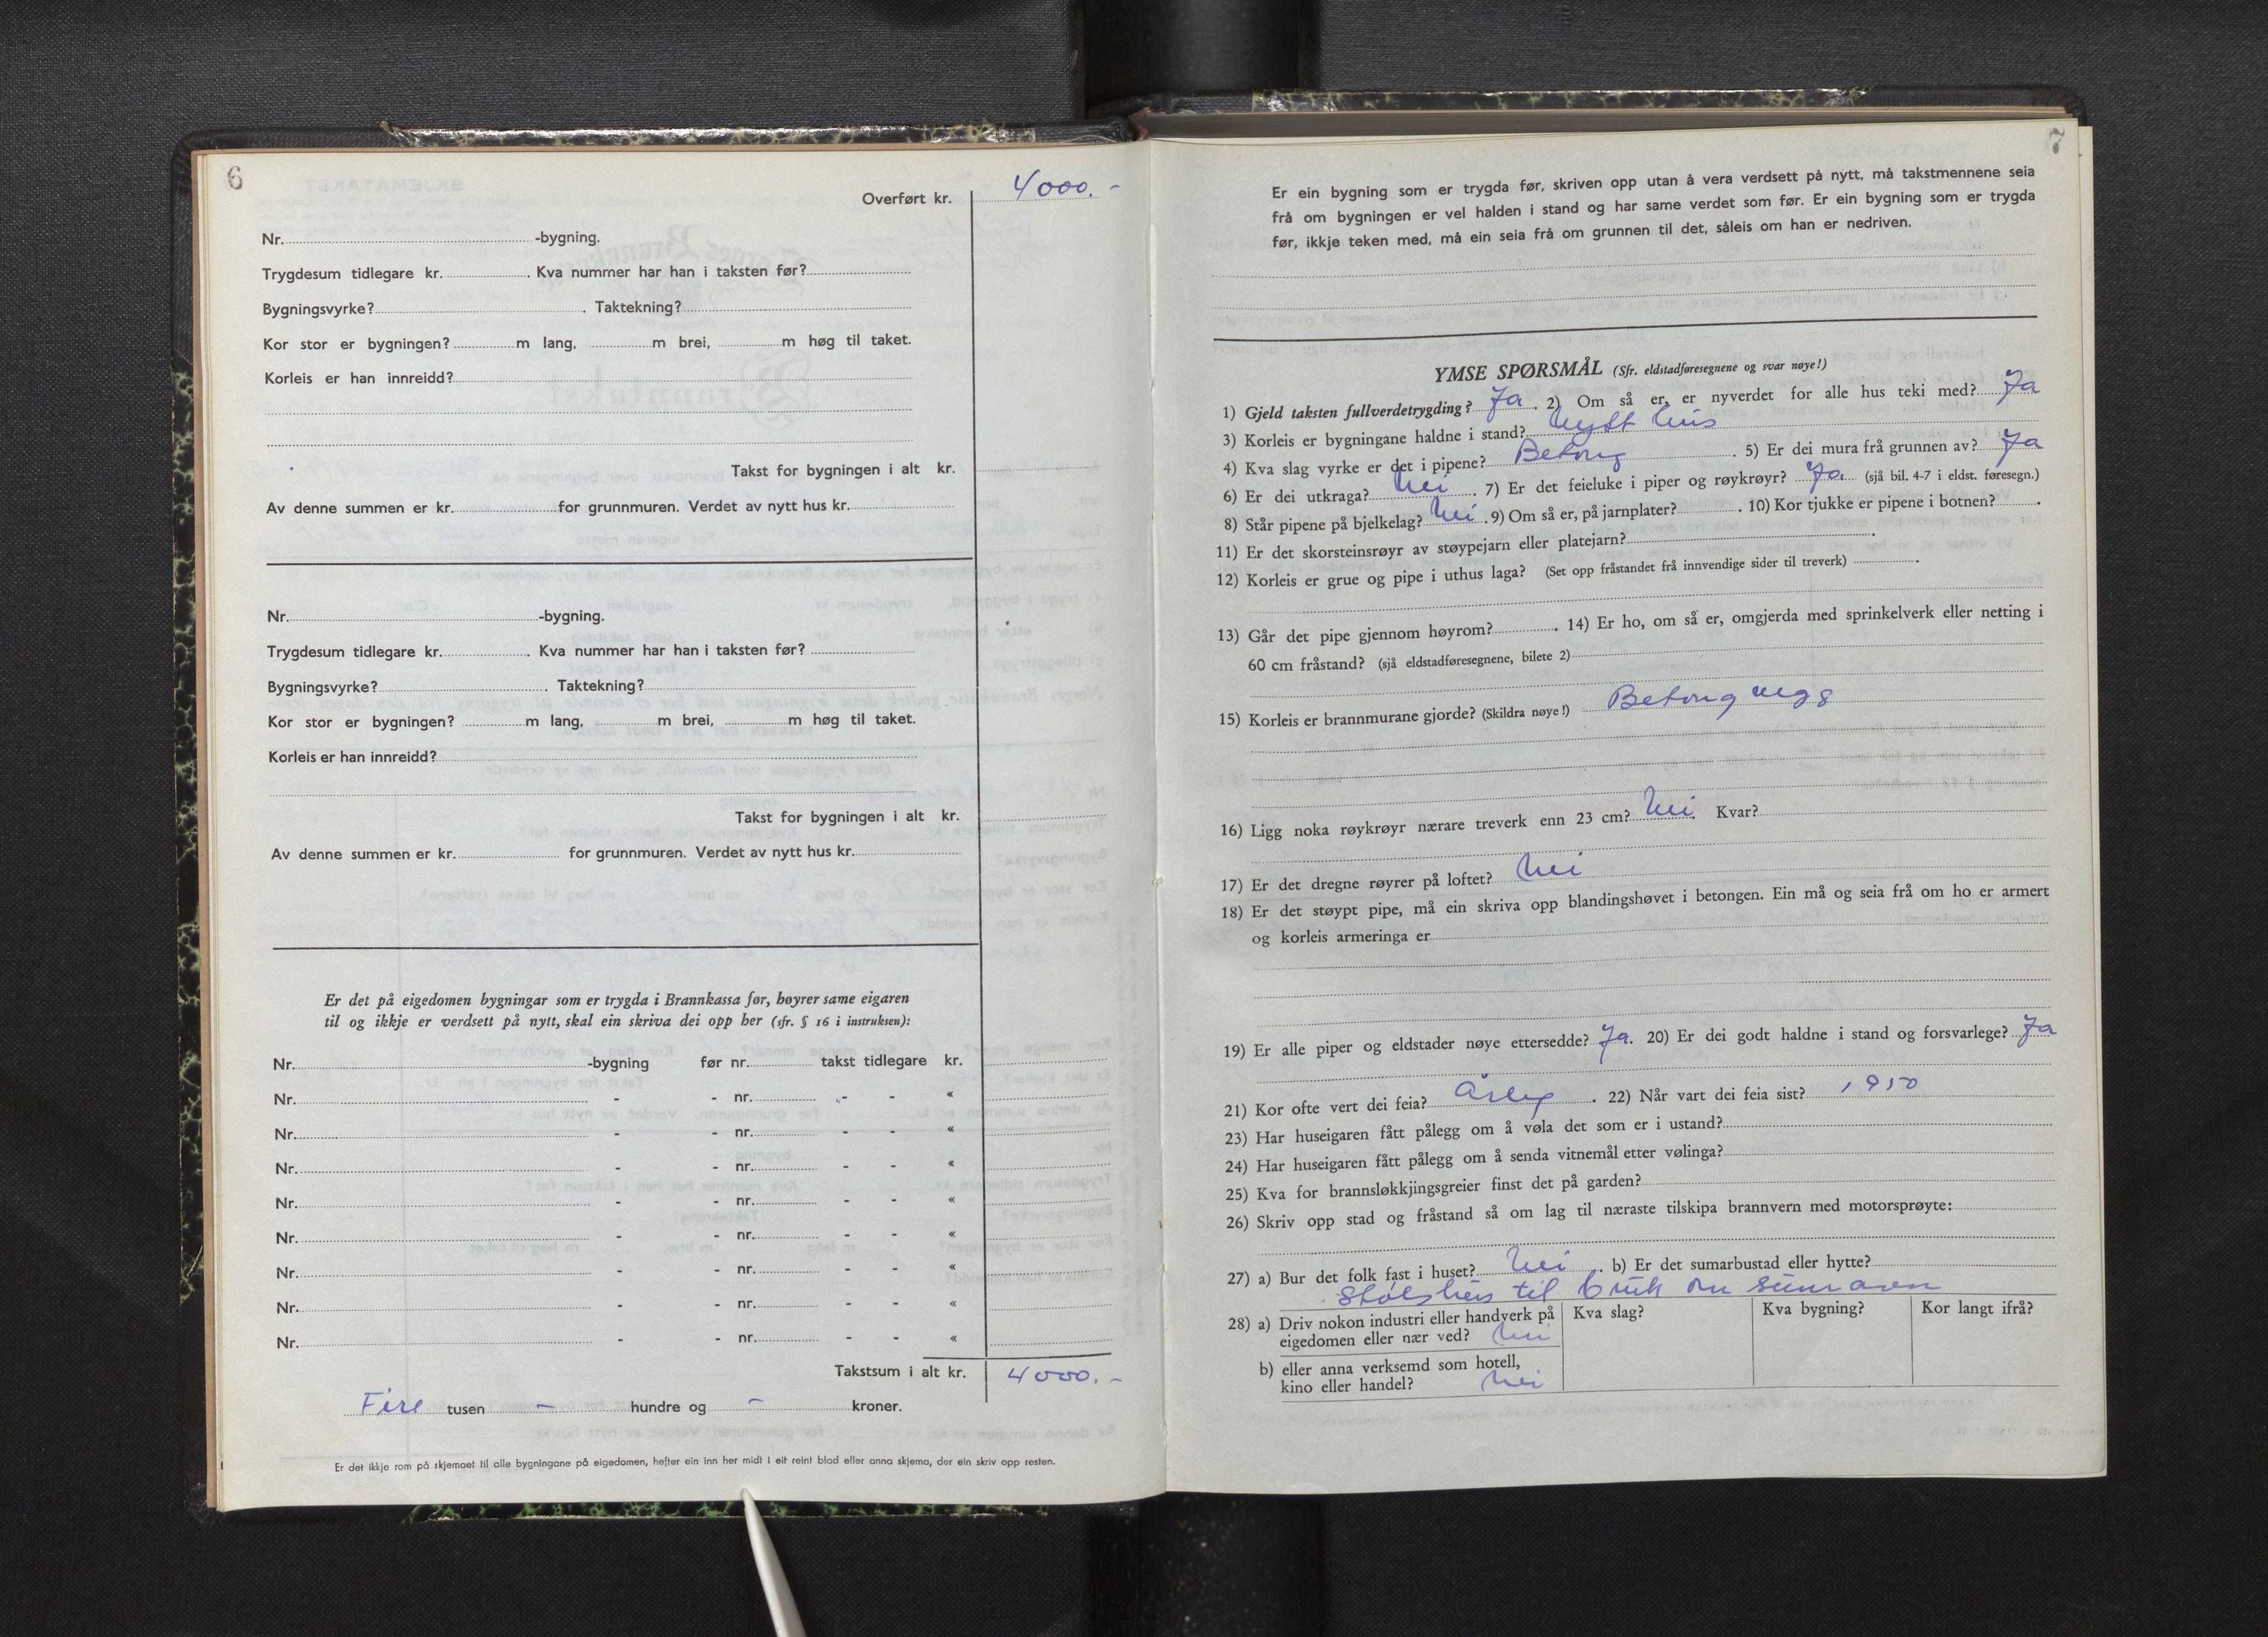 6
Overført kr. 4000.-
Nr. -bygning.
Trygdesum tidlegare kr. . Kva nummer har han i taksten før?
Bygningsvyrke? . Taktekning?
Kor stor er bygningen? m lang, m brei, m høg til taket.
Korleis er han innreidd?
Takst for bygningen i alt kr.
Av denne summen er kr. for grunnmuren. Verdet av nytt hus kr.
Nr. -bygning.
Trygdesum tidlegare kr. . Kva nummer har han i taksten før?
Bygningsvyrke? . Taktekning?
Kor stor er bygningen? m lang, m brei, m høg til taket.
Korleis er han innreidd?
Takst for bygningen i alt kr.
Av denne summen er kr. for grunnmuren. Verdet av nytt hus kr.
Er det på eigedomen bygningar som er trygda i Brannkassa før, høyrer same eigaren
til og ikkje er verdsett på nytt, skal ein skriva dei opp her (sfr. § 16 i instruksen):
Nr. -bygning før nr. takst tidlegare kr.
Nr. - - nr. - - «
Nr. - - nr. - - «
Nr. - - nr. - - «
Nr. - - nr. - - «
Nr. - - nr. - - «
Nr. - - nr. - - «
Nr. - - nr. - - «
Nr. - - nr. - - «
Takstsum i alt kr. 4000.-
Fire tusen - hundre og - kroner.
Er det ikkje rom på skjemaet til alle bygningane på eigedomen, hefter ein inn her midt i eit reint blad eller anna skjema, der ein skriv opp resten.
7
Er ein bygning som er trygda før, skriven opp utan å vera verdsett på nytt, må takstmennene seia
frå om bygningen er vel halden i stand og har same verdet som før. Er ein bygning som er trygda
før, ikkje teken med, må ein seia frå om grunnen til det, såleis om han er nedriven.
YMSE SPØRSMÅL (Sfr. eldstadføresegnene og svar nøye!)
1) Gjeld taksten fullverdetrygding? Ja . 2) Om så er, er nyverdet for alle hus teki med? Ja
3) Korleis er bygningane haldne i stand? Nytt hus
4) Kva slag vyrke er det i pipene? Betong . 5) Er dei mura frå grunnen av? Ja
6) Er dei utkraga? Nei . 7) Er det feieluke i piper og røykrøyr? Ja. (sjå bil. 4-7 i eldst. føresegn.)
8) Står pipene på bjelkelag? Nei . 9) Om så er, på jarnplater? . 10) Kor tjukke er pipene i botnen? .
11) Er det skorsteinsrøyr av støypejarn eller platejarn? .
12) Korleis er grue og pipe i uthus laga? (Set opp fråstandet frå innvendige sider til treverk) .
13) Går det pipe gjennom høyrom? . 14) Er ho, om så er, omgjerda med sprinkelverk eller netting i
60 cm fråstand? (sjå eldstadføresegnene, bilete 2)
15) Korleis er brannmurane gjorde? (Skildra nøye!) Betong vegg
16) Ligg noka røykrøyr nærare treverk enn 23 cm? Nei. Kvar?
17) Er det dregne røyrer på loftet? Nei
18) Er det støypt pipe, må ein skriva opp blandingshøvet i betongen. Ein må og seia frå om ho er armert
og korleis armeringa er
19) Er alle piper og eldstader nøye ettersedde? Ja. 20) Er dei godt haldne i stand og forsvarlege? Ja
21) Kor ofte vert dei feia? Årleg . 22) Når vart dei feia sist? 1950
23) Har huseigaren fått pålegg om å vøla det som er i ustand?
24) Har huseigaren fått pålegg om å senda vitnemål etter vølinga?
25) Kva for brannsløkkjingsgreier finst det på garden?
26) Skriv opp stad og fråstand så om lag til næraste tilskipa brannvern med motorsprøyte:
27) a) Bur det folk fast i huset? Nei . b) Er det sumarbustad eller hytte?
Stølshus til bruk om sumaren
28) a) Driv nokon industri eller handverk på Kva slag? Kva bygning? Kor langt ifrå?
eigedomen eller nær ved? Nei
b) eller anna verksemd som hotell,
kino eller handel? Nei